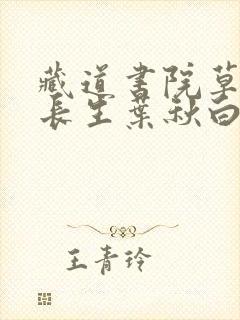 藏道书院草
长生葉秋白
王青玲